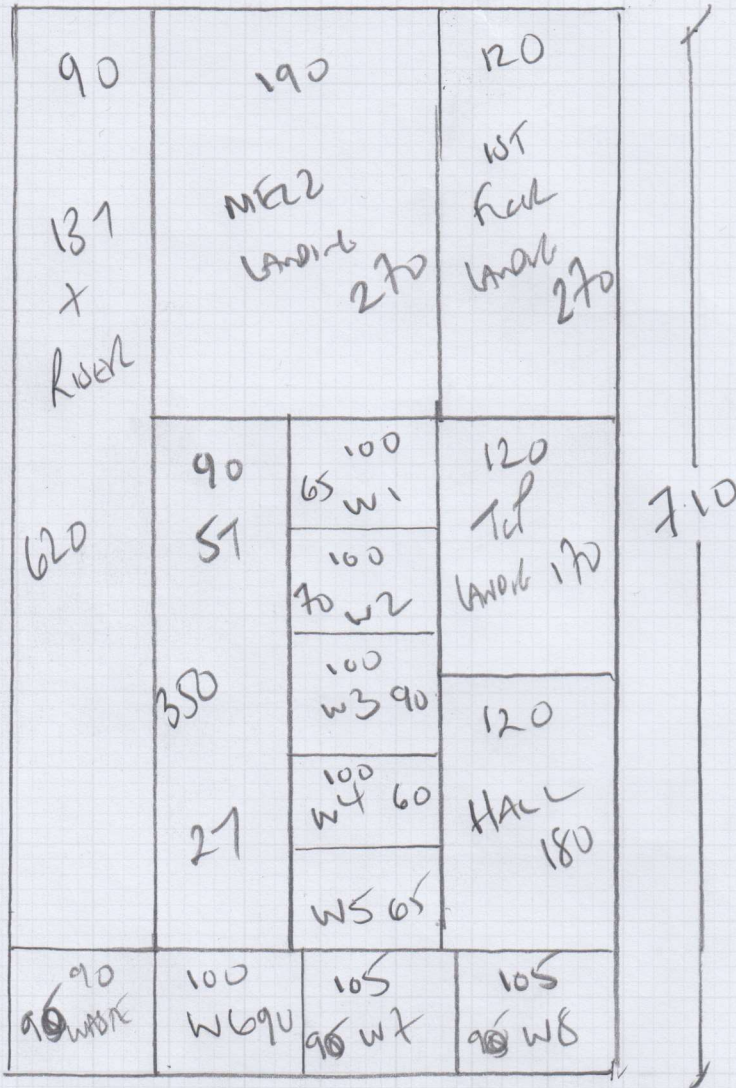 90
13T
X
RISER
620
190
MEZZ
LANDING
270
120
1ST
FLOOR
LANDING
270
90
5T
350
2T
100
65 W1
100
70 W2
100
W3 90
100
W4 60
W5 65
120
TOP
LANDING 170
120
HALL
180
710
90
90 WASTE
100
W6 90
105
90 W7
105
90 W8